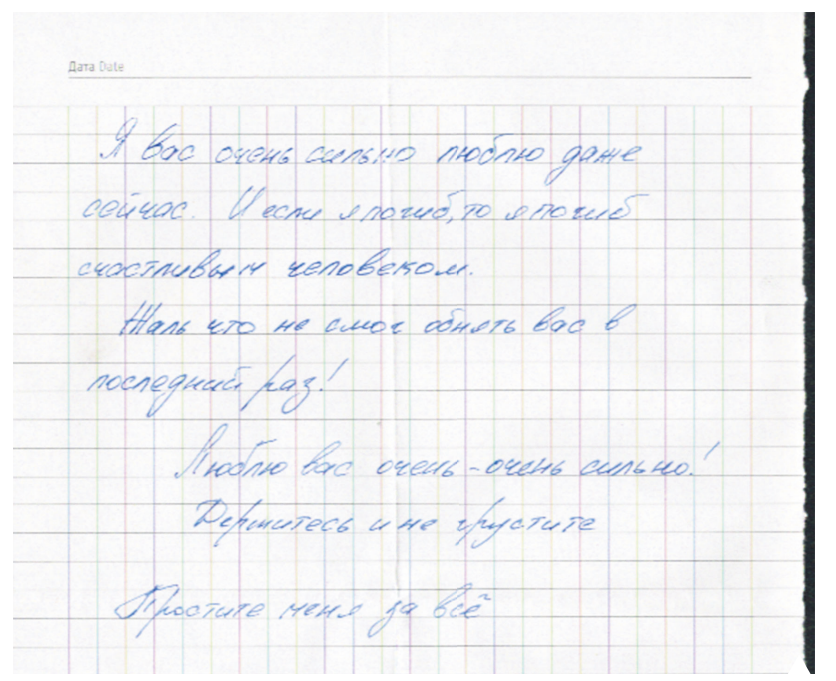 Дата Date
Я вас очень сильно люблю даже
сейчас. И если я погиб, то я погиб
счастливым человеком.
Жаль что не смог обнять вас в
последний раз!
Люблю вас очень-очень сильно!
Держитесь и не грустите
Простите меня за всё